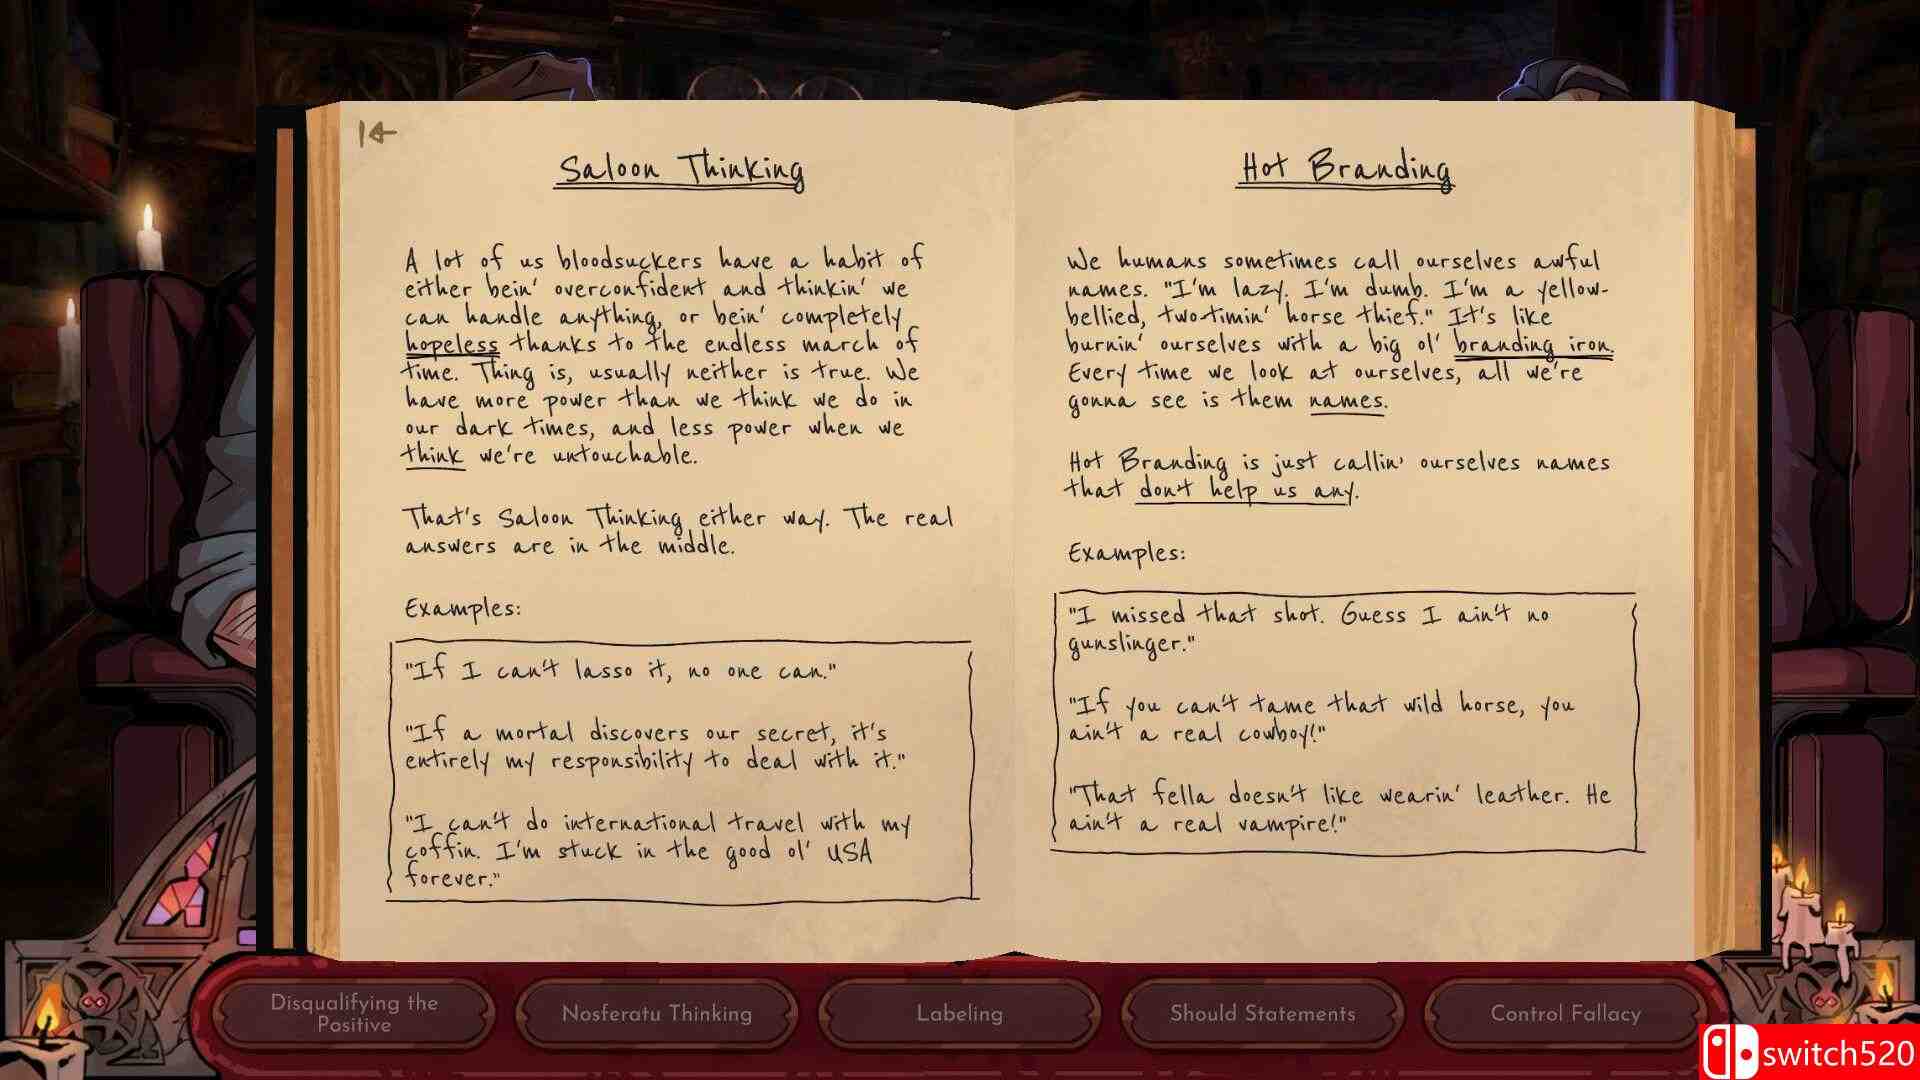 Saloon Thinking
A lot of us bloodsuckers have a habit of
either bein' overconfident and thinkin' we
can handle anything, or bein' completely
hopeless thanks to the endless march of
time. Thing is, usually neither is true. We
have more power than we think we do in
our dark times, and less power when we
think we're untouchable.
That's Saloon Thinking either way. The real
answers are in the middle.
Examples:
"If I can't lasso it, no one can."
"If a mortal discovers our secret, it's
entirely my responsibility to deal with it."
"I can't do international travel with my
coffin. I'm stuck in the good ol' USA
forever."
Hot Branding
We humans sometimes call ourselves awful
names. "I'm lazy. I'm dumb. I'm a yellow-
bellied, two-timin' horse thief." It's like
burnin' ourselves with a big ol' branding iron.
Every time we look at ourselves, all we're
gonna see is them names.
Hot Branding is just callin' ourselves names
that don't help us any.
Examples:
"I missed that shot. Guess I ain't no
gunslinger."
"If you can't tame that wild horse, you
ain't a real cowboy!"
"That fella doesn't like wearin' leather. He
ain't a real vampire!"
Disqualifying the
Positive
Nosferatu Thinking
Labeling
Should Statements
Control Fallacy
switch520